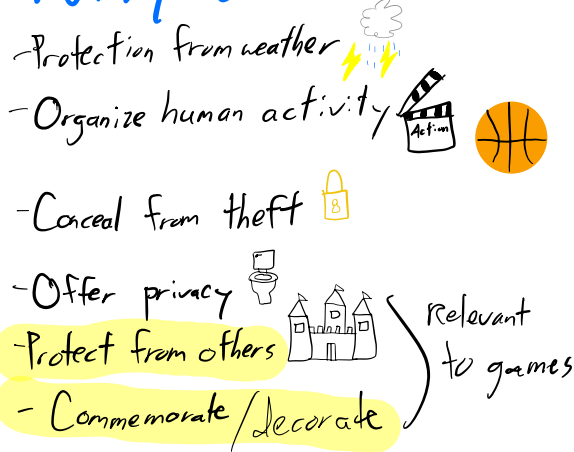 -Protection from weather
-Organize human activity
Action
-Conceal from theft
8
-Offer privacy
-Protect from others
-Commemorate/decorate
Relevant
to games